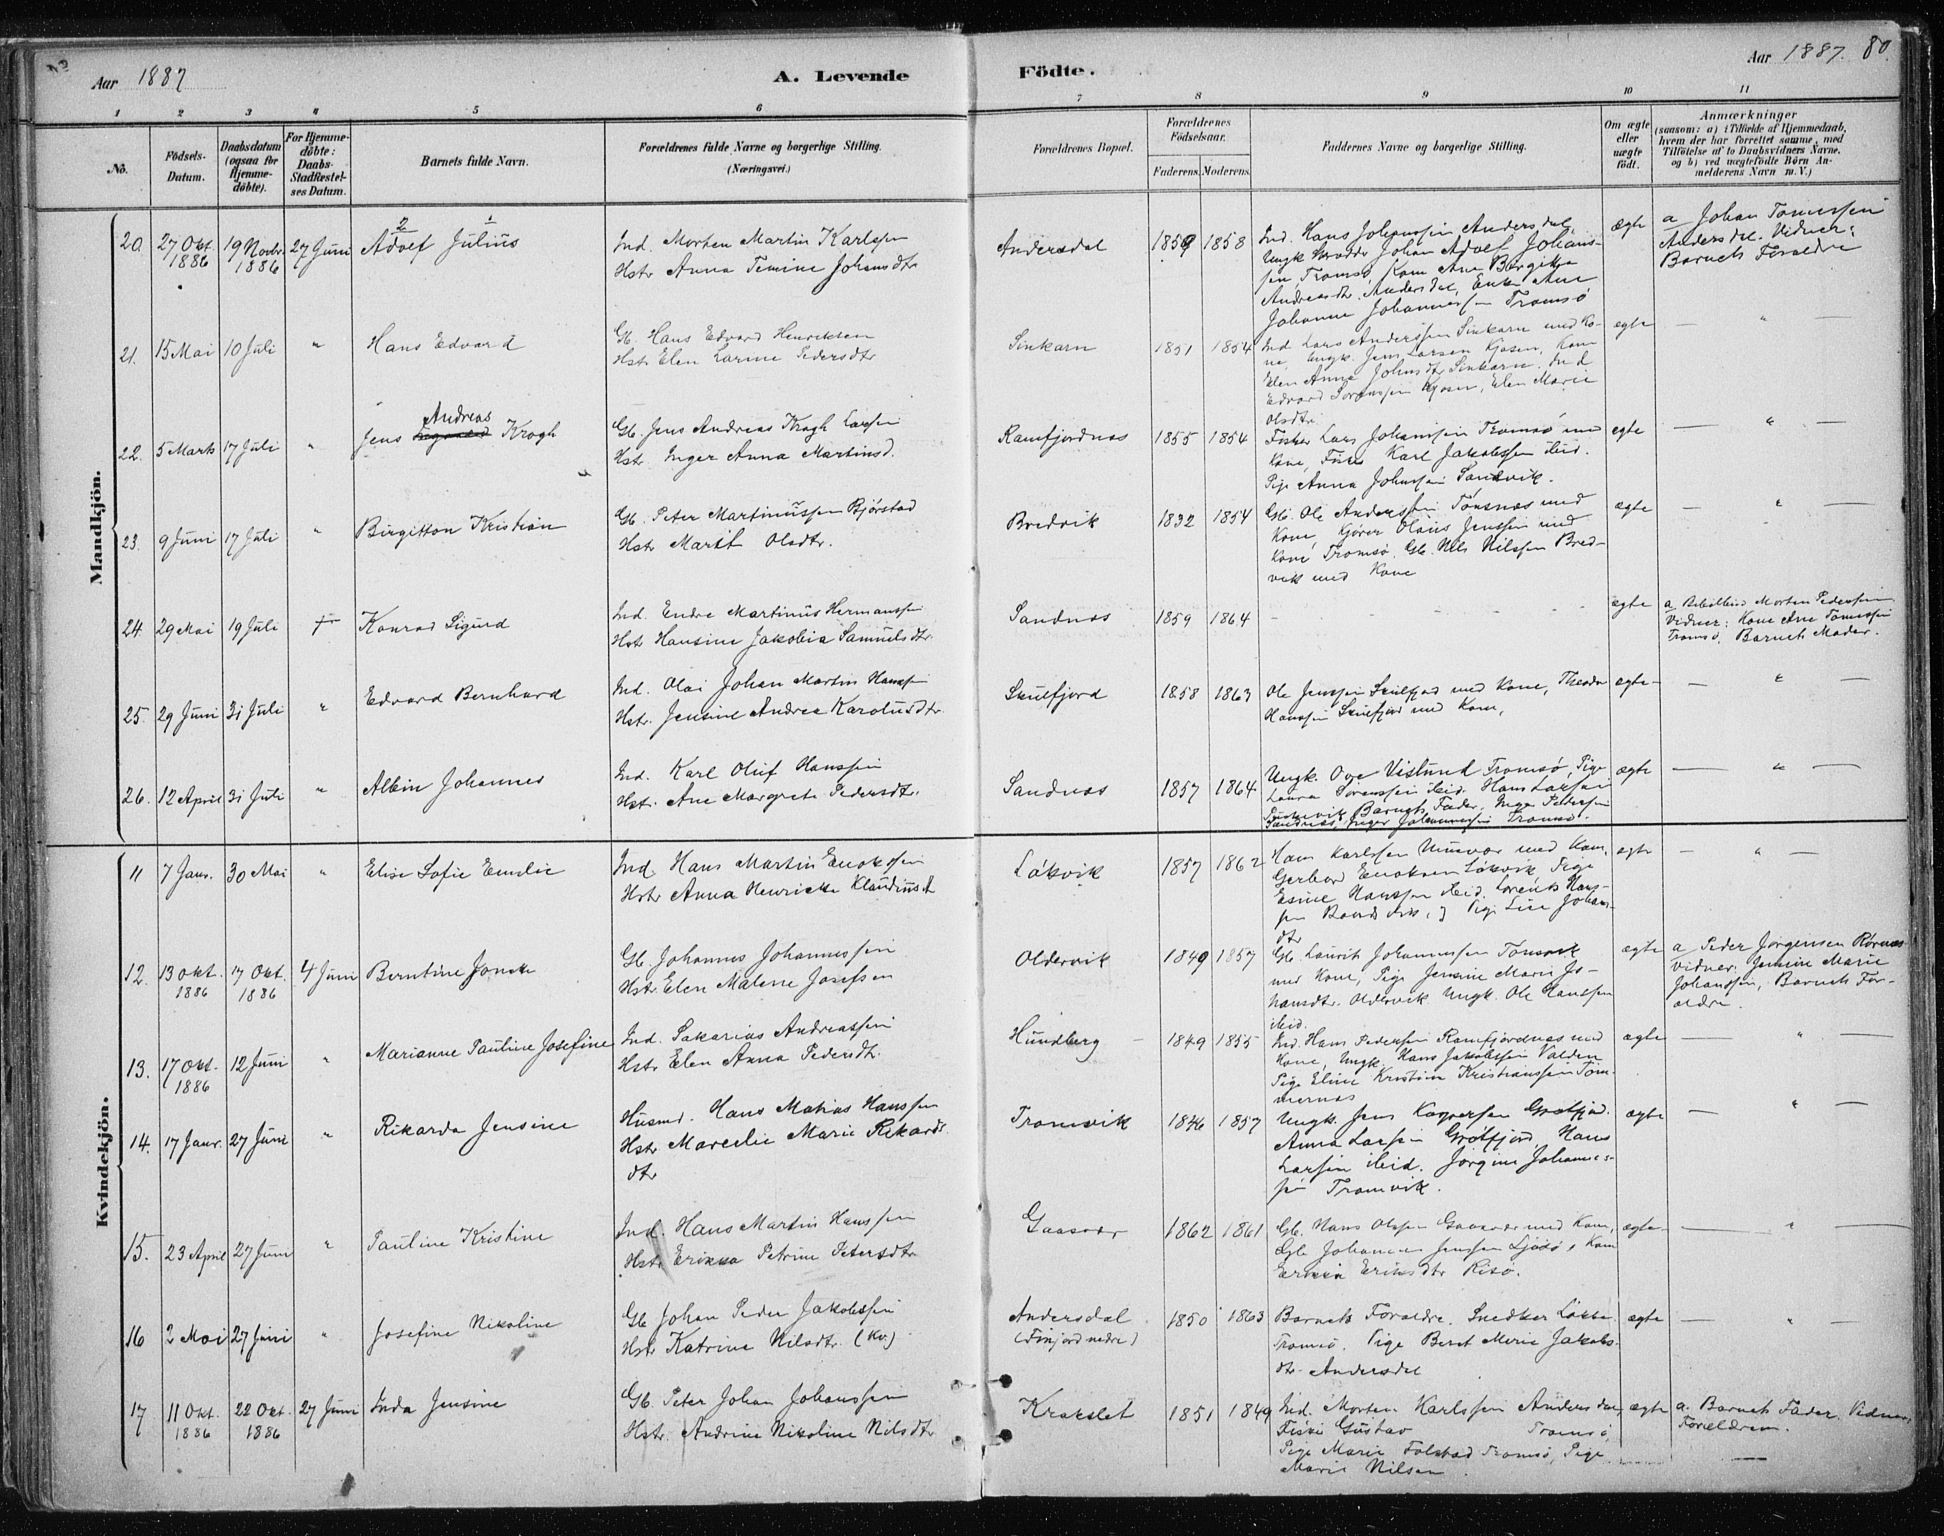 Aar 1887
A. Levende
Födte.
Aar 1887. 80.
1 2 3 4 5 6 7 8 9 10 11
No.
Födsels-
Datum.
Daabsdatum
(ogsaa for
Hjemme-
döbte).
For Hjemme-
döbte:
Daabs-
Stadfæstel-
ses Datum.
Barnets fulde Navn.
Forældrenes fulde Navne og borgerlige Stilling.
(Næringsvei.)
Forældrenes Bopæl.
Forældrenes
Födselsaar.
Faderens. Moderens.
Faddernes Navne og borgerlige Stilling.
Om ægte
eller
uægte
födt.
Anmærkninger
(saasom: a) i Tilfælde af Hjemmedaab,
hvem der har forrettet samme, med
Tilföielse af to Daabsvidners Navne,
og b) ved uægtefödte Börn An-
melderens Navn m. V.)
Mandkjön.
20. 27 Okt. 1886 19 Novbr. 1886 27 Juni Adolf Julius
2 1
Ind. Morten Martin Karlsen
Hstr Anna Temine Johansdtr
Andersdal 1859 1858
Ind. Hans Johansen Andersdal,
Ungk Johan Adolf Johans-
sen, Tromsø Kone Ane Bergitte
Andreasdtr. Andersdal, Enke Ane
Johanne Johannessen Tromsø
ægte
a Johan Tomessen
Andersdal. Vidner:
Barnets Forældre
21. 15 Mai 10 Juli " Hans Edvard
Gb. Hans Edvard Henriksen
Hstr. Elen Larine Pedersdtr
Sinkarn 1851 1854
Ind Lars Anderssen Sinkarn med Ko-
ne, Ungk. Jens Larsen Kjosen, Kone
Elen Anna Johnsdtr Sinkarn. Ind
Edvard Sørenssen Kjosen, Elen Marie
Olsdtr.
ægte — " —
22. 5 Marts 17 Juli " Jens Andreas Krogh
Gb. Jens Andreas Krogh Larsen
Hstr. Inger Anna Martinsd.
Ramfjordnes 1855 1854
Fisker Lars Johansen Tromsø med
Kone, Fisker Karl Jakobssen ibid.
Pige Anna Johnssen Sandvik.
ægte — " —
23. 9 Juni 17 Juli " Birgitton Kristian
Gb. Peter Martinussen Bjørstad
Hstr Marit Olsdtr.
Bredvik 1832 1854
Gb. Ole Anderssen Tønsnes med
Kone, Kjører Olaus Jenssen med
Kone Tromsø. Gb. Nils Nilssen Bred-
vik med Kone
ægte — " —
24. 29 Mai 19 Juli † Konrad Sigurd
Ind. Endre Martinus Hermanssen
Hstr Hansine Jakobia Samuelsdtr.
Sandnes 1859 1864 -
ægte
a Morten Pederssen
Vidner: Kone Ane Tomessen
Tromsø, Barnets Moder.
25. 29 Juni 31 Juli " Edvard Bernhard
Ind. Olai Johan Martin Hanssen
Hstr. Jensine Andrea Karolusdtr.
Skulfjord 1858 1863
Ole Jenssen Skulfjord med Kone, Theodor
Hanssen Skulfjord med Kone,
ægte — " —
26. 12 April 31 Juli " Albin Johannes
Ind. Karl Oluf Hanssen
Hstr. Ane Margrete Pedersdtr.
Sandnes 1857 1864
Ungk. Ove Vislund Tromsø, Pige
Laura Sørenssen ibid. Hans Larssen
Barnets Fader, Inger Pederssen
Sandnes, Inger Johannessen Tromsø.
ægte — " —
Kvindekjön.
11 7 Janr. 30 Mai " Elise Sofie Emilie
Ind. Hans Martin Enokssen
Hstr Anna Henriette Klaudiusdt
Løkvik 1857 1862
Hans Karlssen Musvær med Kone,
Gerhard Enoksen Løkvik Pige
Esine Hanssen ibid. Lorents Hans-
sen, og Pige Lise Johans-
dtr
ægte — " —
12. 13 Okt. 1886 17 Okt. 1886 4 Juni Berntine
Gb. Johannes Johannessen
Hstr Elen Malene Josefsen
Oldervik 1849 1857
Gb. Laurits Johannessen Tomvik
med Kone, Pige Jensine Marie Jo-
hansdtr. Oldervik Ungk. Ole Hanssen
ibid.
ægte
a Peder Jørgensen Rørnes
Vidner: Jensine Marie
Johanssen, Barnets For-
ældre.
13. 17 Okt. 1886 12 Juni " Marianne Pauline Josefine
Ind. Sakarias Andreassen
Hstr Elen Anna Pedersdtr.
Hundberg 1849 1855
Ind. Hans Pederssen Ramfjordnes med
Kone, Ungk. Hans Jakobssen Valden
Pige Eline Kristine Kristianssen Tøm-
mernes
ægte — " —
14. 17 Janr. 27 Juni " Rikarda Jensine
Husmd. Hans Matias Hanssen
Hstr Marcelie Marie Rikards
dtr
Tromvik 1846 1857
Ungk. Jens Kaspersen Grøtfjord.
Anna Larssen Grøtfjord, Hans
Larssen ibid. Jørgine Johannes-
sen Tromvik.
ægte — " —
15. 23 April 27 Juni " Pauline Kristine
Ind. Hans Martin Hanssen
Hstr Erikka Petrine Petersdtr
Gaasvær 1862 1861
Gb. Hans Olssen Gaasvær med Kone,
Gb. Johannes Jenssen Ljødø, Kone
Erikka Eriksdtr Risø.
ægte — " —
16 2 Mai 27 Juni " Josefine Nikoline
Gb Johan Peder Jakobssen
Hstr Katrine Nilsdtr. (Kv)
Andersdal
(Finfjord nedre)
1850 1863
Barnets Forældre. Snedker Løkke
Tromsø. Pige Beret Marie Jakobs-
dtr. Andersdal
ægte — " —
17 11 Okt. 1886 22 Okt. 1886 27 Juni Inda Jensine
Gb. Peter Johan Johanssen
Hstr. Andrine Nikoline Nilsdtr
Krokslet 1851 1849
Ind. Morten Karlssen Andersdal,
Fisker Gustav Tromsø,
Pige Marie Folstad Tromsø, Pige
Marie Nilsen
ægte
a. Barnets Fader. Vidner,
Forældrene.
—